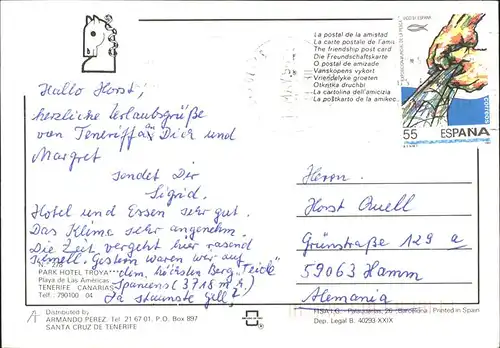 La postal de la amistad
La carte postale de l'ami
The friendship post card
Die Freundschaftskarte
O postal de amizade
Vanskopens vykort
Vriendelyke groeten
Otkritka druchbi
La cartolina dell'amicizia
La poŝtkarto de la amikec
55
ESPAÑA
CORREOS
Hallo Horst,
herzliche Urlaubsgrüße
von Teneriffa an Dich und
Margret
sendet Dir
Sigrid.
Hotel und Essen sehr gut.
Das Klima sehr angenehm.
Die Zeit vergeht hier rasend
schnell. Gestern waren wir auf
dem höchsten Berg "Teide"
Spaniens (3718 m).
Da staunste gell?
Herrn
Horst Quell
Grünstraße 129 a
59063 Hamm
Alemania
N.° 278
PARK HOTEL TROYA
Playa de Las Américas
TENERIFE CANARIAS
Telf. 790100 04
Distributed by
ARMANDO PEREZ. Tel. 21 67 01. P.O. Box 897
SANTA CRUZ DE TENERIFE
26 (Barcelona) Printed in Spain
Dep. Legal B. 40293-XXIX